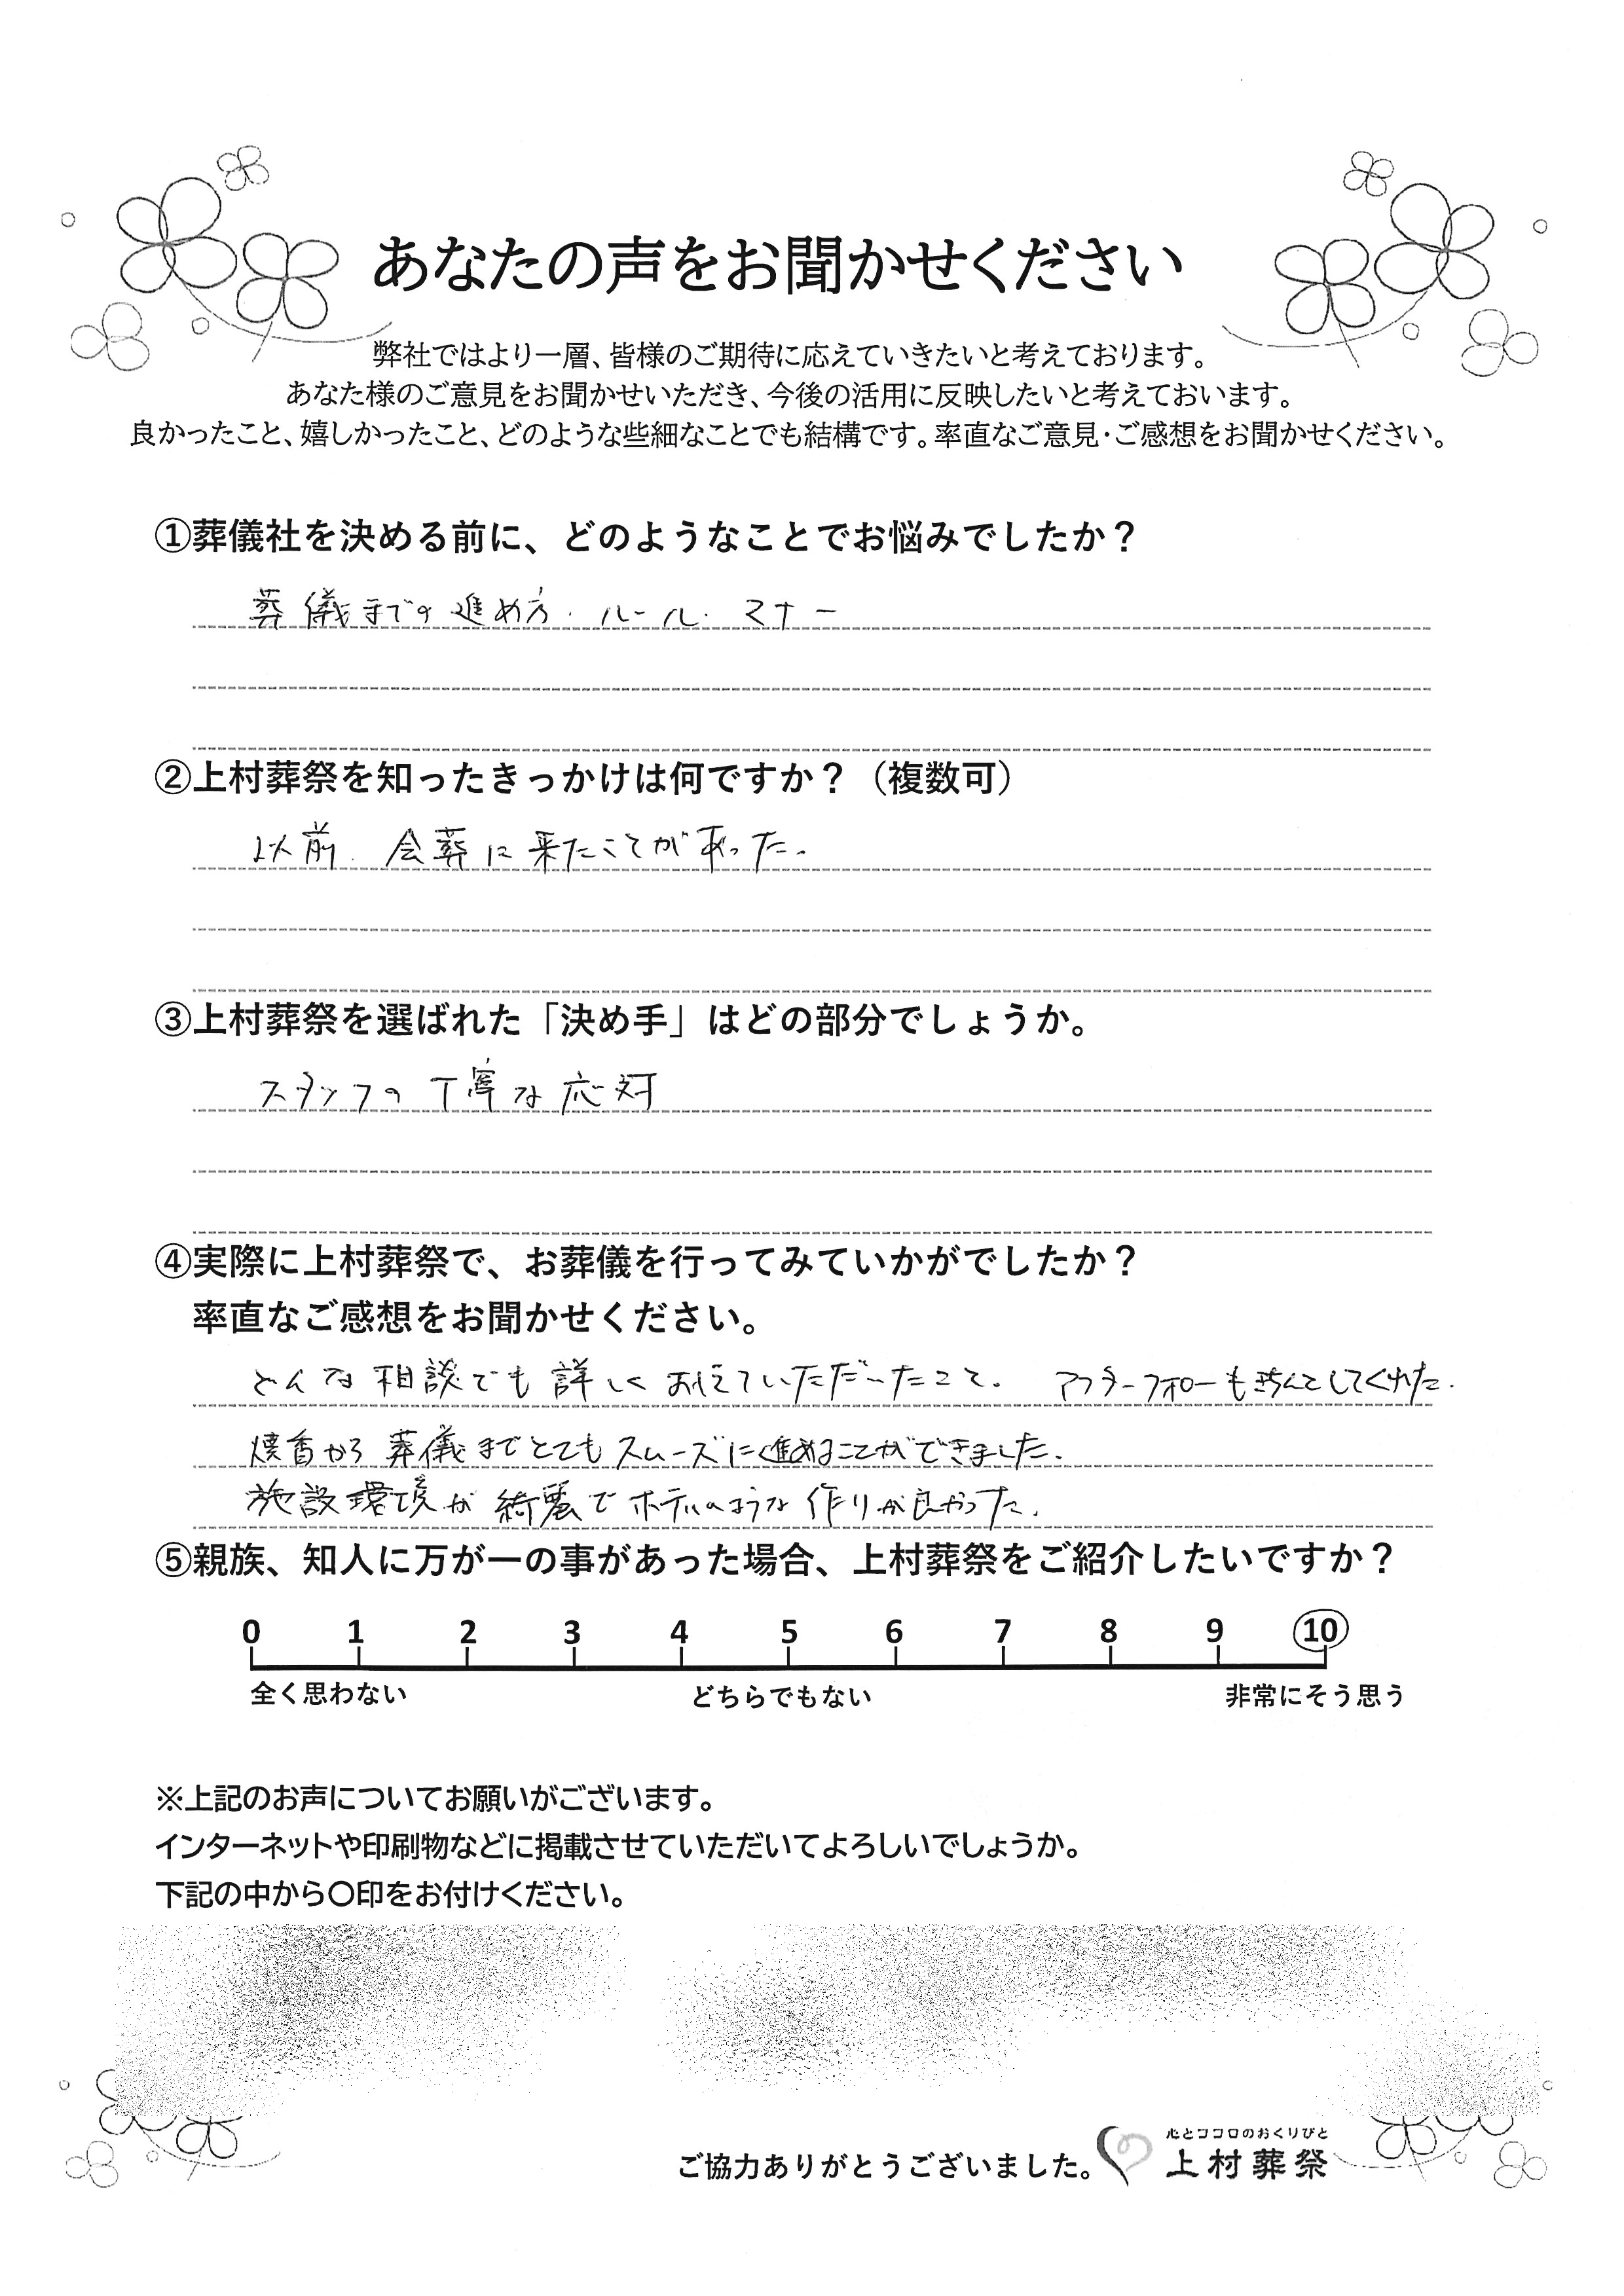 あなたの声をお聞かせください
弊社ではより一層、皆様のご期待に応えていきたいと考えております。
あなた様のご意見をお聞かせいただき、今後の活用に反映したいと考えておいます。
良かったこと、嬉しかったこと、どのような些細なことでも結構です。率直なご意見・ご感想をお聞かせください。
①葬儀社を決める前に、どのようなことでお悩みでしたか？
葬儀までの進め方・ルール・マナー
②上村葬祭を知ったきっかけは何ですか？（複数可）
以前、会葬に来たことがあった。
③上村葬祭を選ばれた「決め手」はどの部分でしょうか。
スタッフの丁寧な応対
④実際に上村葬祭で、お葬儀を行ってみていかがでしたか？
率直なご感想をお聞かせください。
どんな相談でも詳しくおしえていただいたこと。 アフターフォローもきちんとしてくれた。
焼香から葬儀までとてもスムーズに進めることができました。
施設環境が綺麗でホテルのような作りが良かった。
⑤親族、知人に万が一の事があった場合、上村葬祭をご紹介したいですか？
0 1 2 3 4 5 6 7 8 9 10
全く思わない どちらでもない 非常にそう思う
※上記のお声についてお願いがございます。
インターネットや印刷物などに掲載させていただいてよろしいでしょうか。
下記の中から〇印をお付けください。
心とココロのおくりびと
ご協力ありがとうございました。 上村葬祭